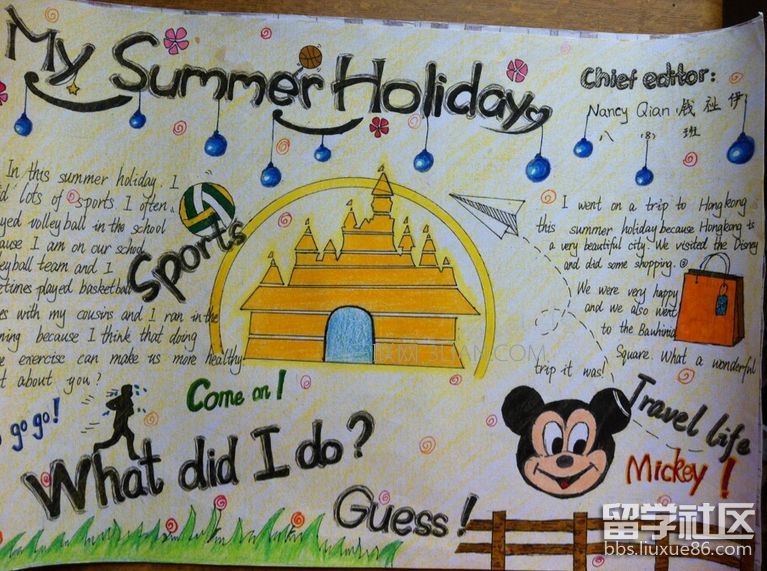 My Summer Holiday
Chief editor:
Nancy Qian 钱祉伊
八 (8) 班
In this summer holiday. I
lots of sports I often.
yed volleyball in the school
ause I am on our school
leyball team and I
etimes played basketball
es with my cousins and I ran in the
ning because I think that doing
exercise can make us more healthy
t about you?
Sports
go go!
Come on!
What did I do?
Guess!
I went on a trip to Hongkong
this summer holiday because Hongkong is
a very beautiful city. We visited the Disney
and did some shopping.
We were very happy
and we also went
to the Bauhinia
Square. What a wonderful
trip it was!
Travel life
Mickey!
留学社区
bbs.liuxue86.com